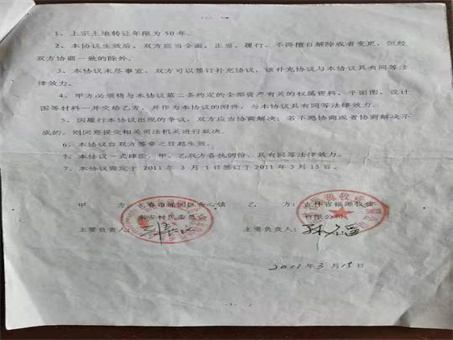 1、上宗土地转让年限为50年。
2、本协议生效后，双方应当全面、正当、履行，不得擅自解除或者变更，但经
双方协商一致的除外。
3、本协议未尽事宜，双方可以签订补充协议，该补充协议与本协议具有同等法
律效力。
4、甲方必须将与本协议第二条约定的全部资产有关的权属资料、平面图、设计
图等材料一并交给乙方，并作为本协议的附件，与本协议具有同等法律效力。
5、因履行本协议出现的争议，双方应当协商解决；若不愿协商或者协商解决不
成的，则同意提交相关司法机关进行裁决。
6、本协议自双方签章之日起生效。
7、本协议一式肆份，甲、乙双方各执两份，具有同等法律效力。
7、本协议签订于2011年3月1日签订2011年3月15日。
甲 方： 长春市 区 心镇 乙 方： 吉林省 牧业
村民委员 有限公司
主要负责人： 主要负责人：
2011年3月15日